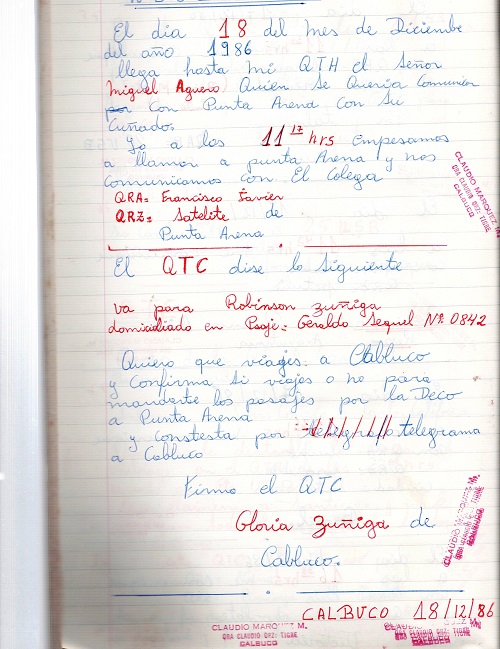 El día 18 del mes de Diciembre
del año 1986
llega hasta mi QTH el Señor
Miguel Aguero Quien Se Queria Comunicar
por con Punta Arena Con Su
Cuñado.
Yo a las 11 17 hrs Empesamos
a llamar a punta Arena y nos
Comunicamos con El Colega
QRA= Francisco Javier
QRZ= Satelite de
Punta Arena
El QTC dise lo Siguiente
va para Robinson Zuñiga
domiciliado en Psaje= Geraldo Seguel Nº 0842
Quiero que viajes a Cabluco
y Confirma Si viajes o no para
mandarte los pasajes por la Deco
a Punta Arena
y constesta por telegrama
a Cabluco
Firma el QTC
Gloria Zuñiga de
Cabluco.
CALBUCO 18/12/86
CLAUDIO MARQUEZ M.
QRA CLAUDIO QRZ: TIGRE
CALBUCO
CLAUDIO MARQUEZ M.
QRA CLAUDIO QRZ: TIGRE
CALBUCO
CLAUDIO MARQUEZ M.
CALBUCO